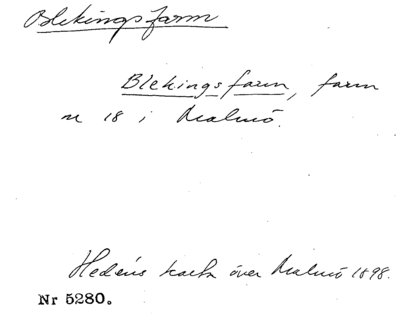 Blekingsfarm
Blekingsfarm, farm
nr 18 i Malmö.
Hedéns karta över Malmö 1898.
Nr 5280.